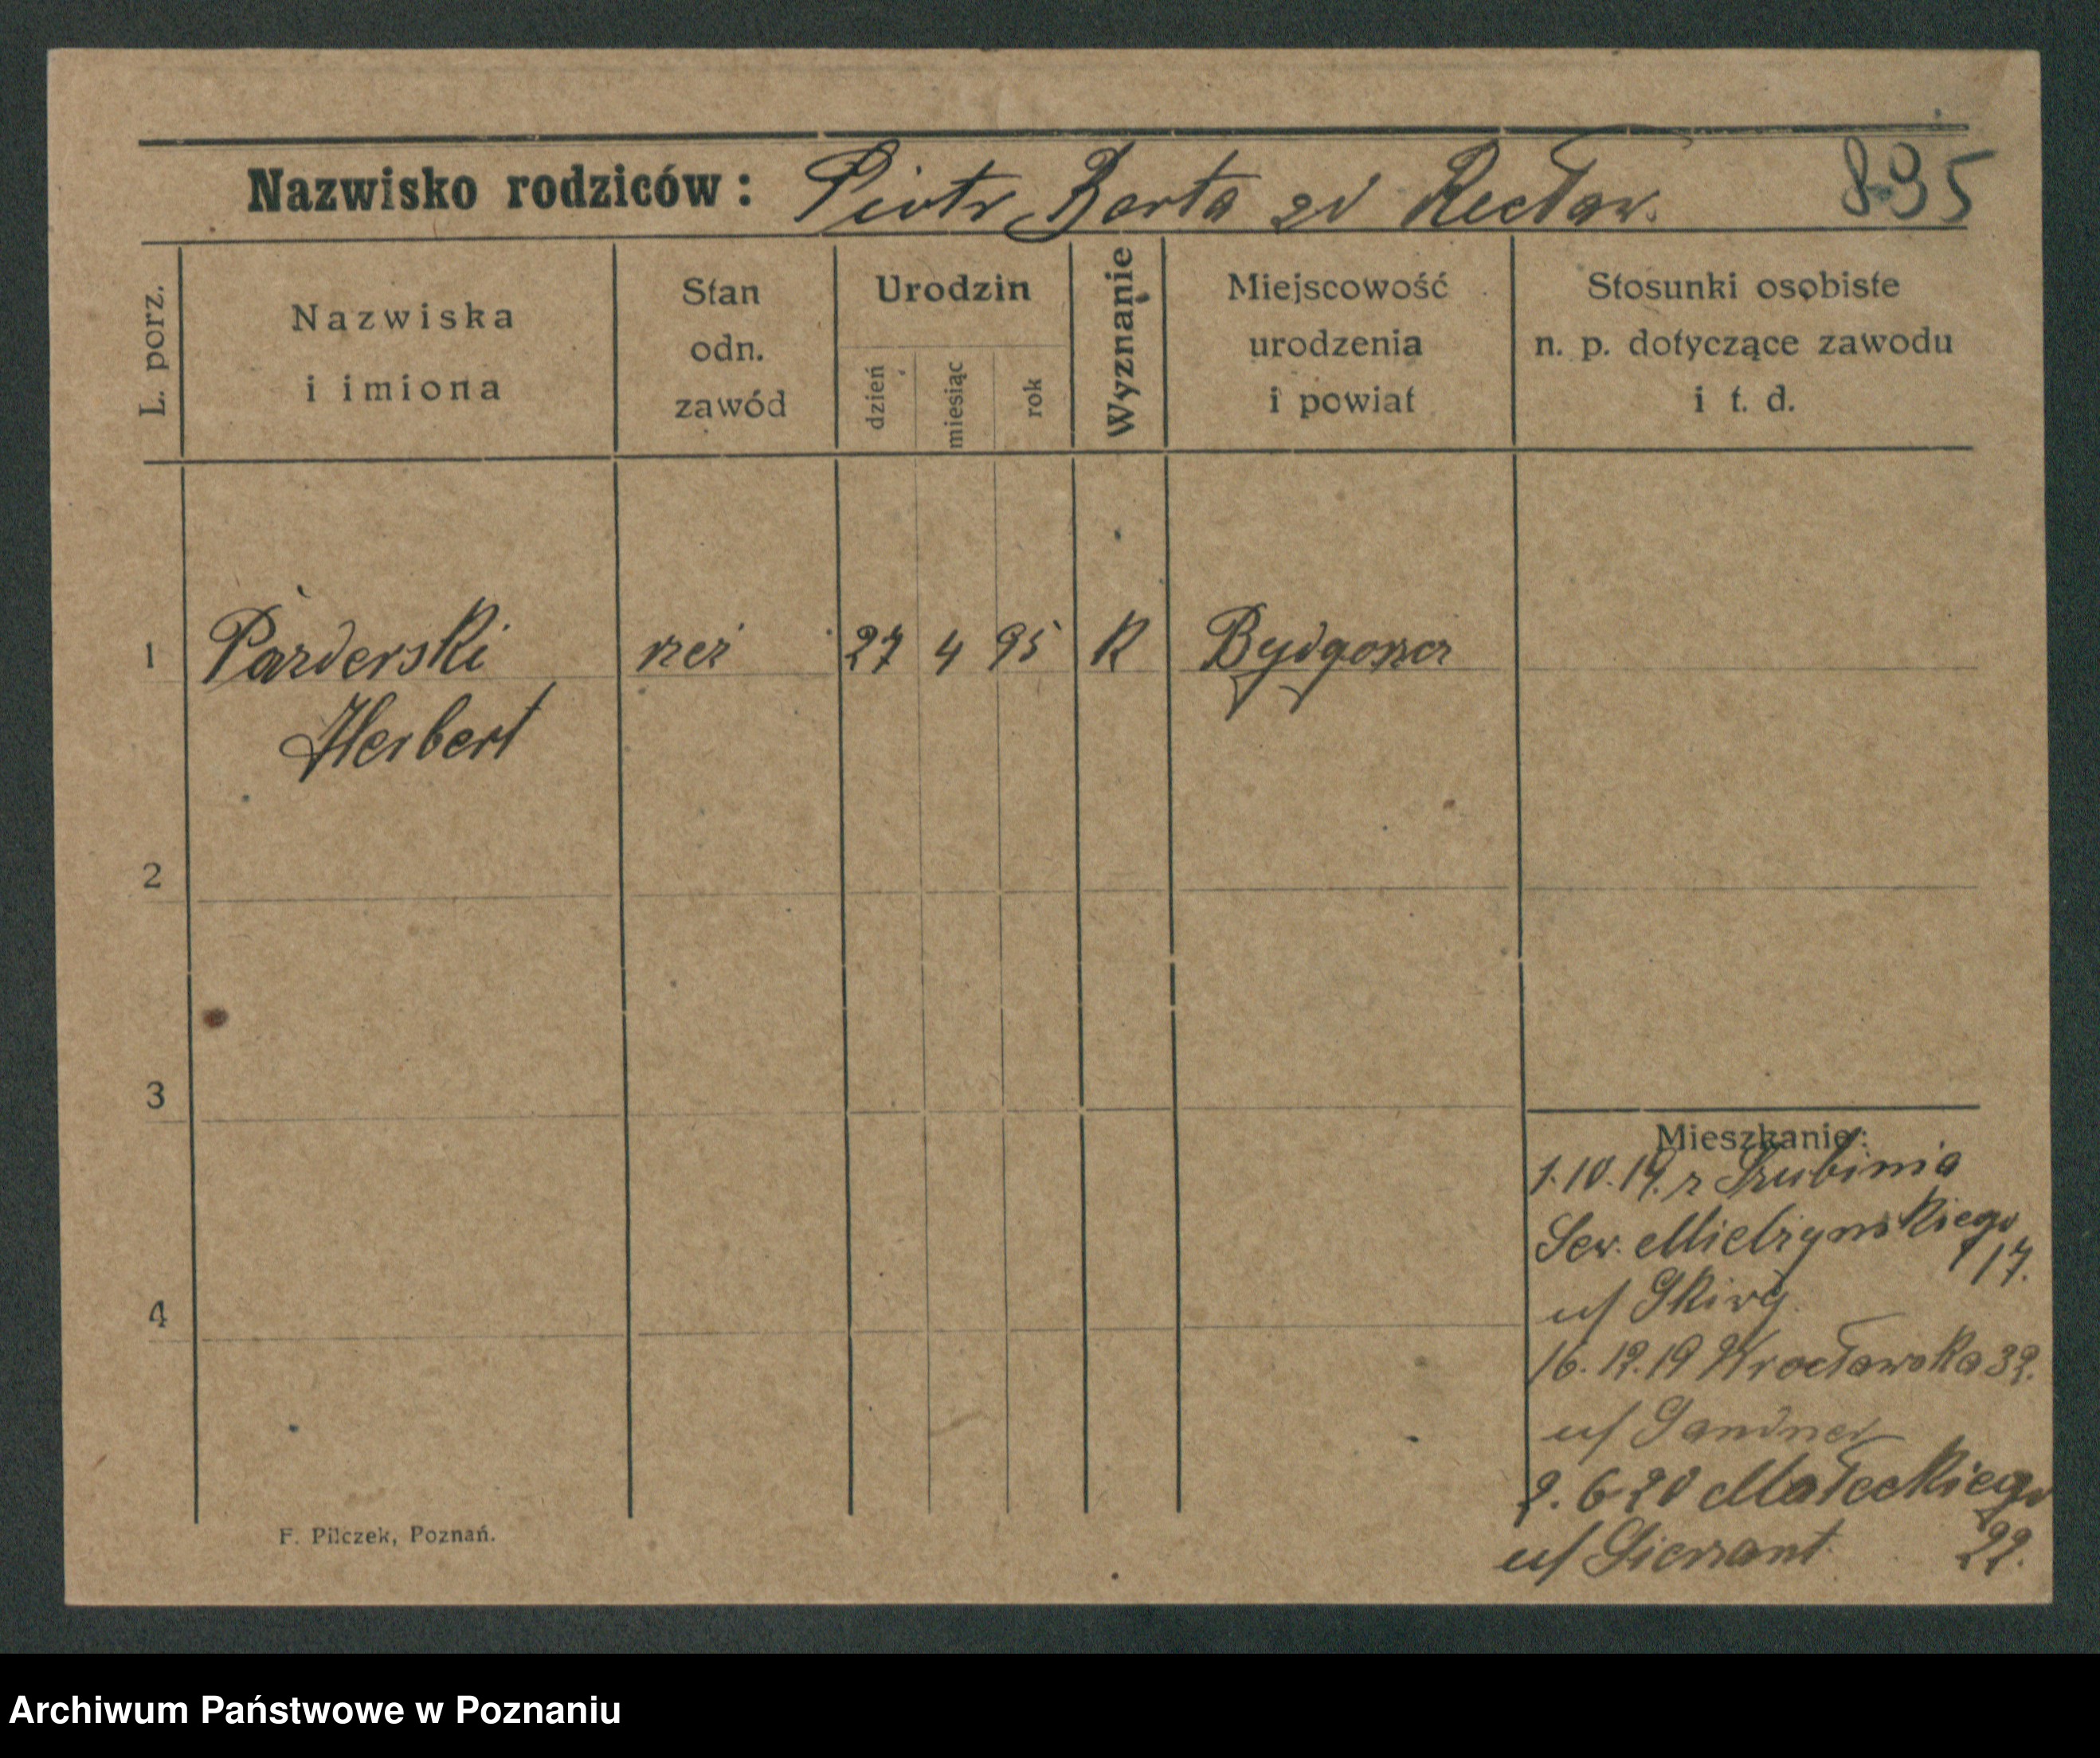 Nazwisko rodziców: Piotr Barta zd Recław. 895
L. porz.
Nazwiska i imiona
Stan odn. zawód
Urodzin
dzień miesiąc rok
Wyznanie
Miejscowość urodzenia i powiat
Stosunki osobiste n. p. dotyczące zawodu i t. d.
1 Parderski 27 4 95 K
Herbert
2
3
4
Mieszkanie:
1.10.19. z Szubinia
Sew. Mielzynskiego
17.
u/
16.12.19 Wrocławska 32.
u/ Sandner
2.6.20 Małeckiego
u/ 22.
F. Pilczek, Poznań.
Archiwum Państwowe w Poznaniu